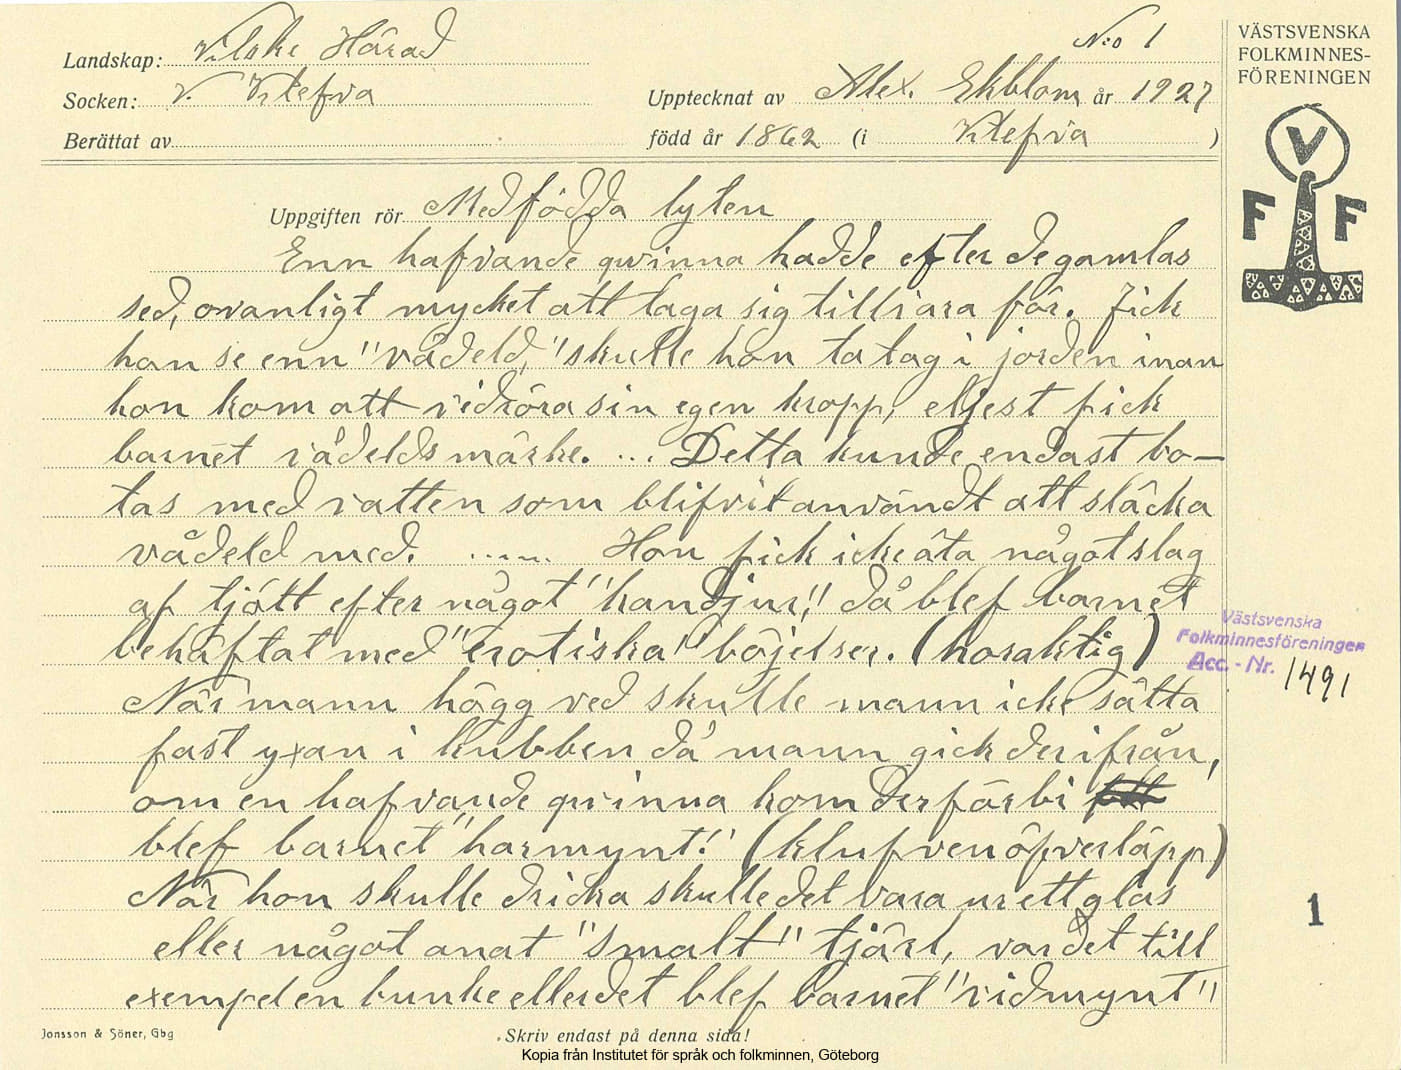 Landskap: Vilske Härad
Socken: V. Vtefva
Berättat av
N:o 1
Upptecknat av Alex. Ekblom år 1927
född år 1862 (i Vtefva )
VÄSTSVENSKA
FOLKMINNES-
FÖRENINGEN
V
F F
Uppgiften rör Medfödda lyten
Enn hafvande qvinna hadde efter de gamlas
sed, ovanligt mycket att taga sig tillvara för. Fick
hon se enn "vådeld," skulle hon ta tag i jorden inan
hon kom att vidröra sin egen kropp, eljest fick
barnet vådeldsmärke. ... Detta kunde endast bo–
tas med vatten som blifvit användt att släcka
vådeld med. ...... Hon fick icke äta något slag
af tjött efter något "handjur," då blef barnet
behäftat med "erotiska" böjelser. (horaktig)
När mann högg ved skulle mann icke sätta
fast yxan i kubben då mann gick derifrån,
om en hafvande qvinna kom derförbi
blef barnet "harmynt." (klufven öfverläpp)
När hon skulle dricka skulle det vara ur ett glas
eller något anat "smalt" tjärl, var det till
exempel en bunke eller det blef barnet "vidmynt"
Västsvenska
Folkminnesföreningen
Acc. - Nr. 1491
1
Jonsson & Söner, Gbg
Skriv endast på denna sida!
Kopia från Institutet för språk och folkminnen, Göteborg